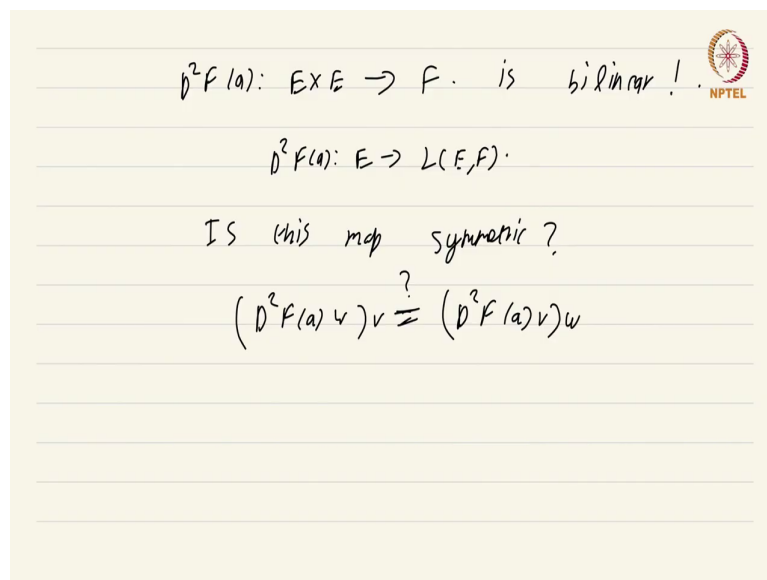 D²F(a): E×E → F. is bilinear!.
NPTEL
D²F(a): E → L(E,F).
Is this map symmetric?
(D²F(a)w)v ≟ (D²F(a)v)w